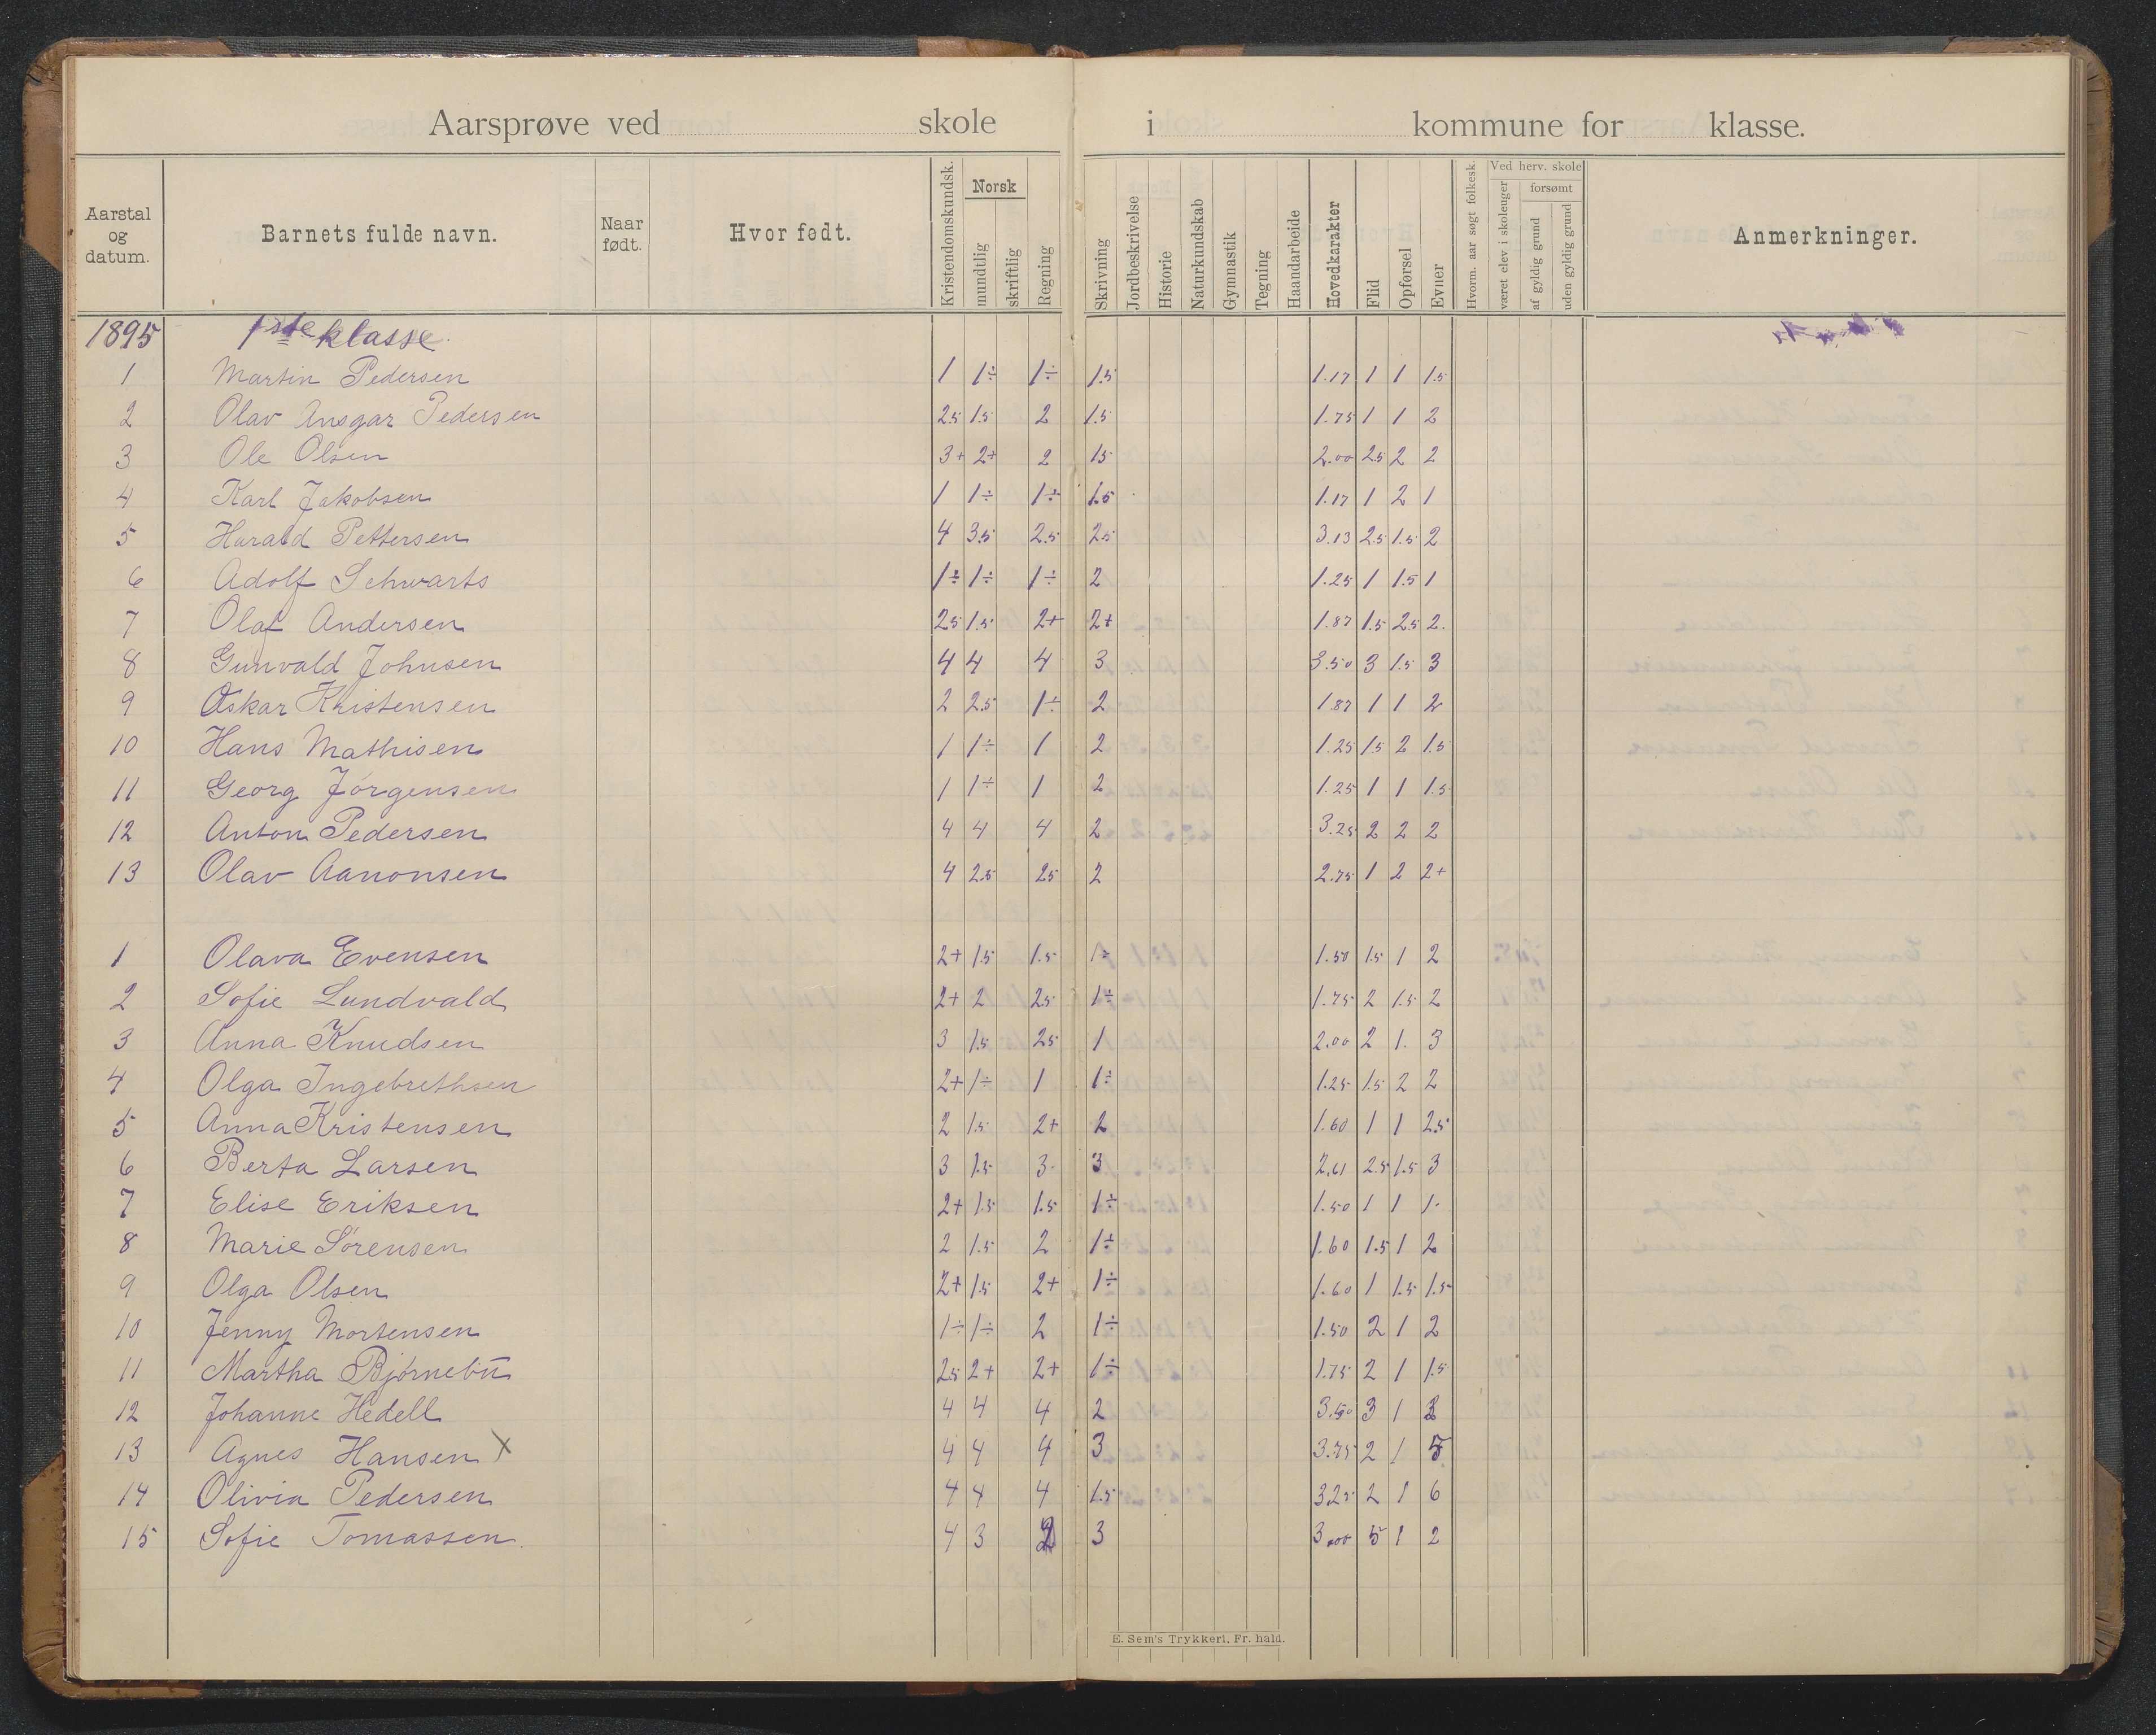 Aarsprøve ved skole i kommune for klasse.
Aarstal og datum. Barnets fulde navn. Naar født. Hvor født. Kristendomskundsk. Norsk mundtlig skriftlig Regning Skrivning Jordbeskrivelse Historie Naturkundskab Gymnastik Tegning Haandarbeide Hovedkarakter Flid Opførsel Evner Hvorm. aar søgt folkesk. Ved herv. skole været elev i skoleuger forsømt af gyldig grund uden gyldig grund Anmerkninger.
1895 1ste klasse.
1 Martin Pedersen 1 1÷ 1÷ 1.5 1.17 1 1 1.5
2 Olav Ansgar Pedersen 2.5 1.5 2 1.5 1.75 1 1 2
3 Ole Olsen 3+ 2+ 2 1.5 2.00 2.5 2 2
4 Karl Jakobsen 1 1÷ 1÷ 1.5 1.17 1 2 1
5 Harald Pettersen 4 3.5 2.5 2.5 3.13 2.5 1.5 2
6 Adolf Schwarts 1÷ 1÷ 1÷ 2 1.25 1 1.5 1
7 Olaf Andersen 2.5 1.5 2+ 2+ 1.87 1.5 2.5 2.
8 Gunvald Johnsen 4 4 4 3 3.50 3 1.5 3
9 Oskar Kristensen 2 2.5 1÷ 2 1.87 1 1 2
10 Hans Mathisen 1 1÷ 1 2 1.25 1.5 2 1.5
11 Georg Jörgensen 1 1÷ 1 2 1.25 1 1 1.5
12 Anton Pedersen 4 4 4 2 3.25 2 2 2
13 Olav Aanonsen 4 2.5 2.5 2 2.75 1 2 2+
1 Olava Evensen 2+ 1.5 1.5 1÷ 1.50 1.5 1 2
2 Sofie Lundvald 2+ 2 2.5 1÷ 1.75 2 1.5 2
3 Anna Knudsen 3 1.5 2.5 1 2.00 2 1. 3
4 Olga Ingebrethsen 2+ 1÷ 1 1÷ 1.25 1.5 2 2
5 Anna Kristensen 2 1.5 2+ 2 1.60 1 1 2.5
6 Berta Larsen 3 1.5 3. 3 2.61 2.5 1.5 3
7 Elise Eriksen 2+ 1.5 1.5 1÷ 1.50 1 1 1.
8 Marie Sörensen 2 1.5 2 1÷ 1.60 1.5 1 2
9 Olga Olsen 2+ 1.5 2+ 1÷ 1.60 1 1.5 1.5
10 Jenny Mortensen 1÷ 1÷ 2 1÷ 1.50 2 1 2
11 Martha Bjørnebū 2.5 2+ 2+ 1÷ 1.75 2 1 1.5
12 Johanne Hedell 4 4 4 2 3.50 3 1
13 Agnes Hansen X 4 4 4 3 3.75 2 1 5
14 Olivia Pedersen 4 4 4 1.5 3.25 2 1 6
15 Sofie Tomassen. 4 3 2 3 3.00 5 1 2
E. Sem's Trykkeri, Fr. hald.